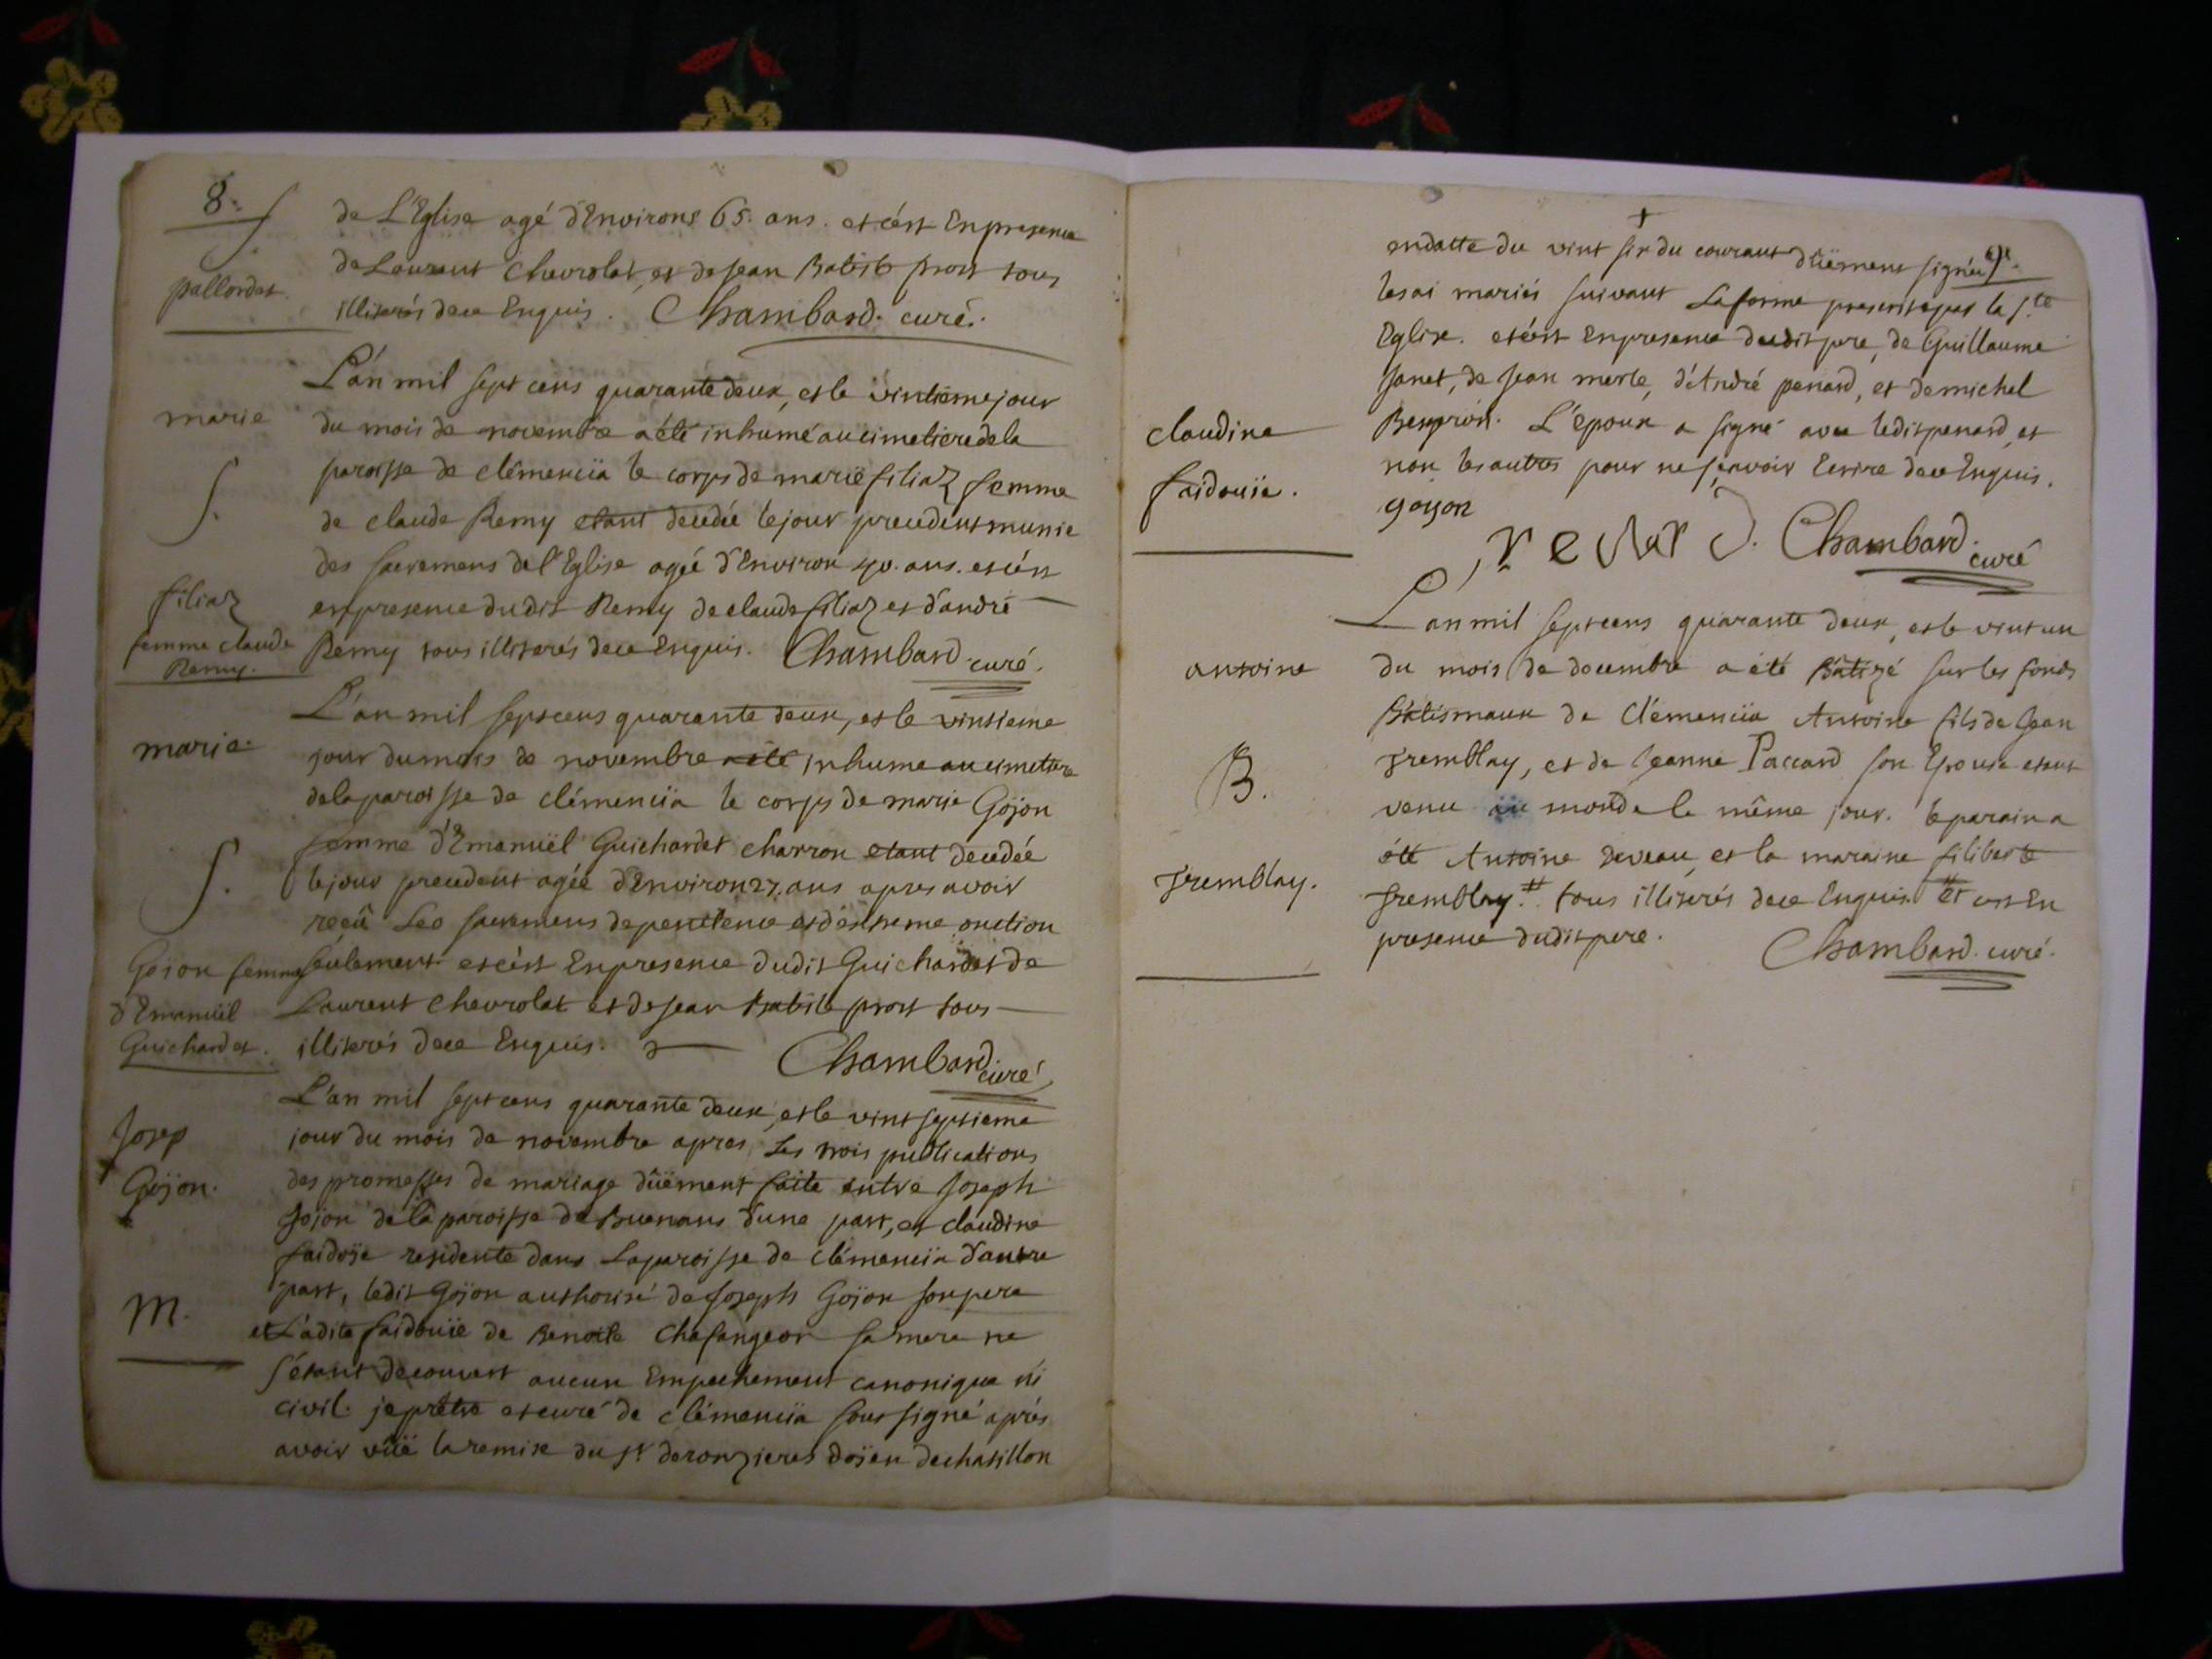 8.
S.
pallordet.
de L'Eglise agé d'Environs 65. ans. et c'est En presence
de Laurant Chevrolat, et de Jean Batiste prost tous
illiterés de ce Enquis. Chambard. curé.
marie
S.
filiaz
femme claude
Remy.
L'an mil sept cens quarante deux, et le vintiéme jour
du mois de novembre a été inhumé au cimetiere de la
paroisse de clémenciïa le corps de marie filiaz femme
de claude Remy etant decedée le jour precedent munie
des sacremens de l'Eglise agée d'Environ 40. ans. et c'est
en presence dudit Remy de claude filiaz et d'andré
Remy tous illiterés de ce Enquis. Chambard. curé.
marie.
S.
Gojon femme
d'Emanuël
Guichardet.
L'an mil sept cens quarante deux, et le vintieme
jour du mois de novembre a été inhume au cimetiere
de la paroisse de clémenciïa le corps de marie Gojon
femme d'Emanuël Guichardet charron etant decedée
le jour precedent agée d'Environ 27. ans apres avoir
reçû Les sacremens de penitence et d'extreme onction
seulement. et c'est En presence dudit Guichardet de
Laurent Chevrolat et de Jean batiste prost tous
illiterés de ce Enquis. Chambard. curé
Josep
Gojon.
M.
L'an mil sept cens quarante deux, et le vint septieme
jour du mois de novembre apres Les trois publications
des promesses de mariage dûëment faite entre Joseph
Gojon de la paroisse de Buenans d'une part, et claudine
faidoïe residente dans La paroisse de clémenciïa d'autre
part, ledit Gojon authorisé de Joseph Gojon son pere
et L'adite faidouïe de Benoite Chafangeon sa mere ne
s'étant decouvert aucun Empechement canonique ni
civil. je prêtre et curé de clémenciïa soussigné aprés
avoir vûë la remise du sr. deronzieres doÿen de chatillon
+
en datte du vint six du courant dûëment signée
les ai mariés suivant La forme prescrite par la ste
Eglise. et c'est En presence dudit pere, de Guillaume
Janet, de Jean merle, d'André penard, et de michel
L'époux a signé avec ledit penard, et
non les autres pour ne sçavoir Ecrire de ce Enquis.
claudine
faidouïe.
goyon
Chambard. curé
antoine
B.
Tremblay.
L'an mil sept cens quarante deux, et le vint un
du mois de decembre a été Bâtizé sur les fonds
Bâtismaux de Clémenciïa Antoine fils de Jean
Tremblay, et de Jeanne Paccard son Epouse etant
venu au monde le même jour. le parain a
été Antoine Deveau, et la maraine filiberte
Tremblay # tous illiterés de ce Enquis. # Et c'est En
presence dudit pere.
Chambard. curé.